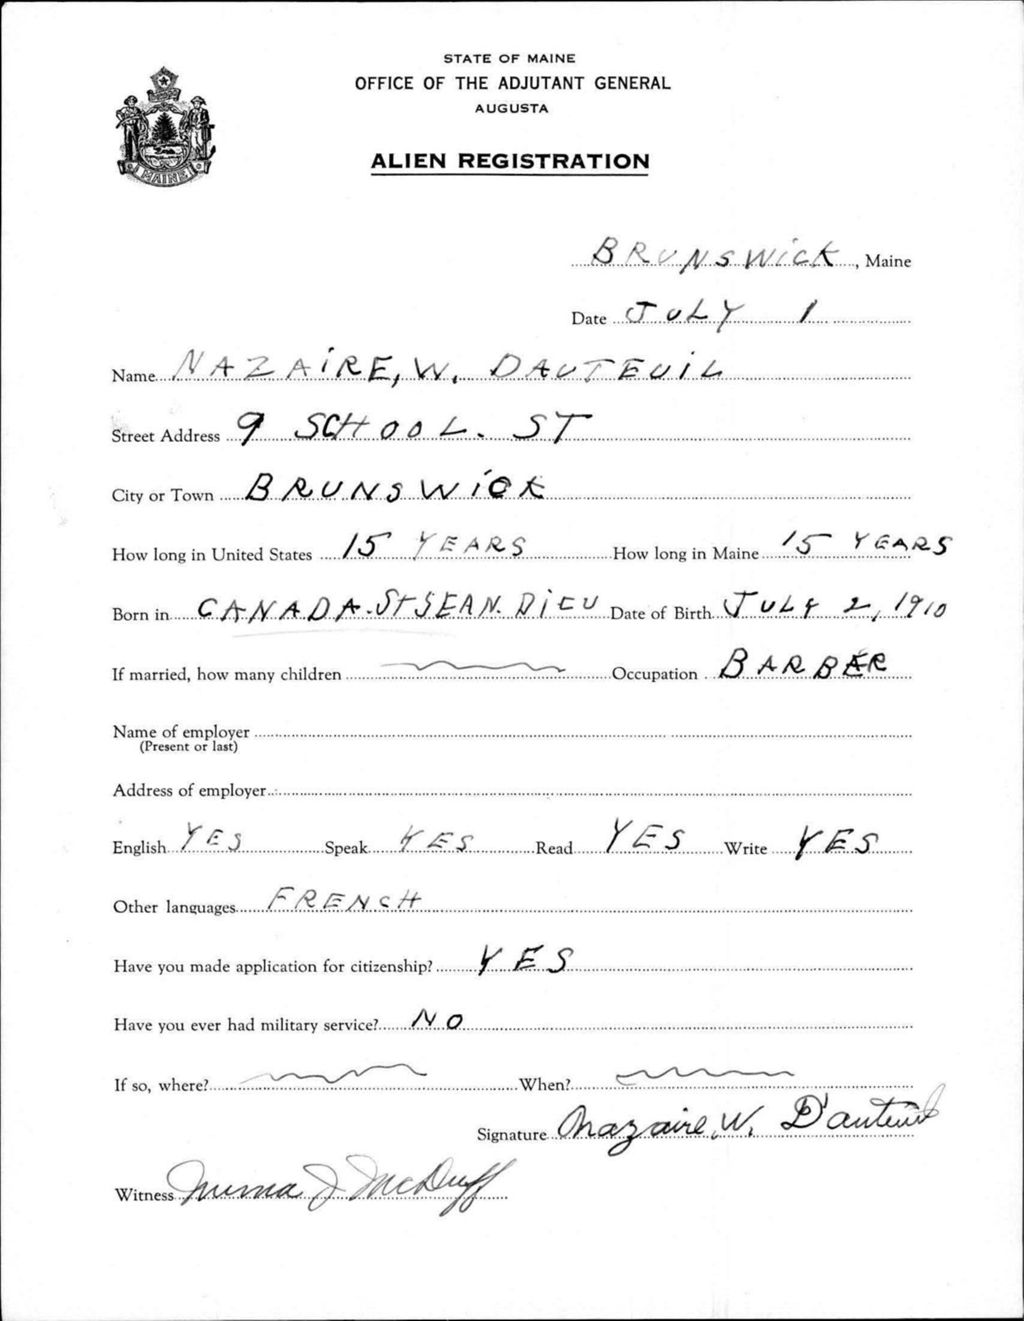 STATE OF MAINE
OFFICE OF THE ADJUTANT GENERAL
AUGUSTA
MAINE
ALIEN REGISTRATION
BRUNSWiCK, Maine
Date JULY 1
Name NAZAiRE, W. DAUTEUiL
Street Address 9 SCHOOL. ST
City or Town BRUNSWiCK
How long in United States 15 YEARS How long in Maine 15 YEARS
Born in CANADA. ST JEAN. DiEU Date of Birth JULY 2, 1910
If married, how many children Occupation BARBER
Name of employer
(Present or last)
Address of employer
English YES Speak YES Read YES Write YES
Other languages FRENCH
Have you made application for citizenship? YES
Have you ever had military service? NO
If so, where? When?
Signature Nazaire, W. D'auteuil
Witness J McDuff